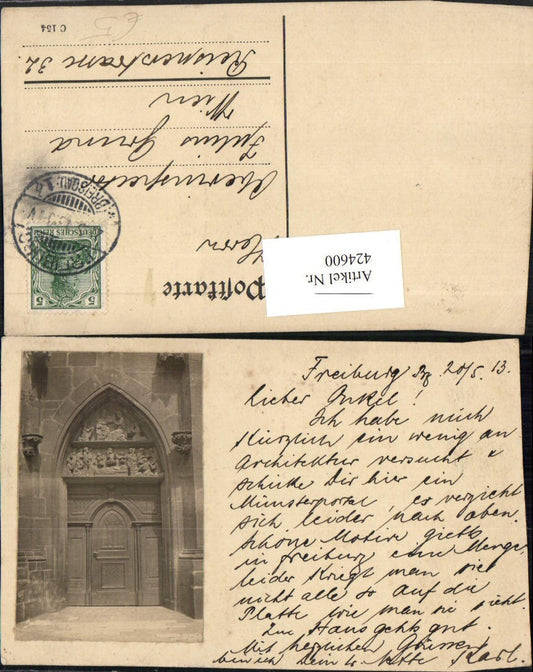 C 154
Postkarte
Herrn
Oberinspector
Julius Grund
Wien
Reisnerstrasse 32.
DEUTSCHES REICH
5 5
Artikel Nr.
424600
Freiburg Bg 20/5. 13.
lieber Onkel!
Ich habe mich
kürzlich ein wenig an
Architektur versucht &
schicke Dir hier ein
Münsterportal, es verzieht
sich leider nach oben.
Schöne Motive giebts
in Freiburg eine Menge,
leider kriegt man sie
nicht alle so auf die
Platte wie man sie sieht.
Im Haus gehts gut.
Mit herzlichen Grüssen
bin ich Dein Karl.